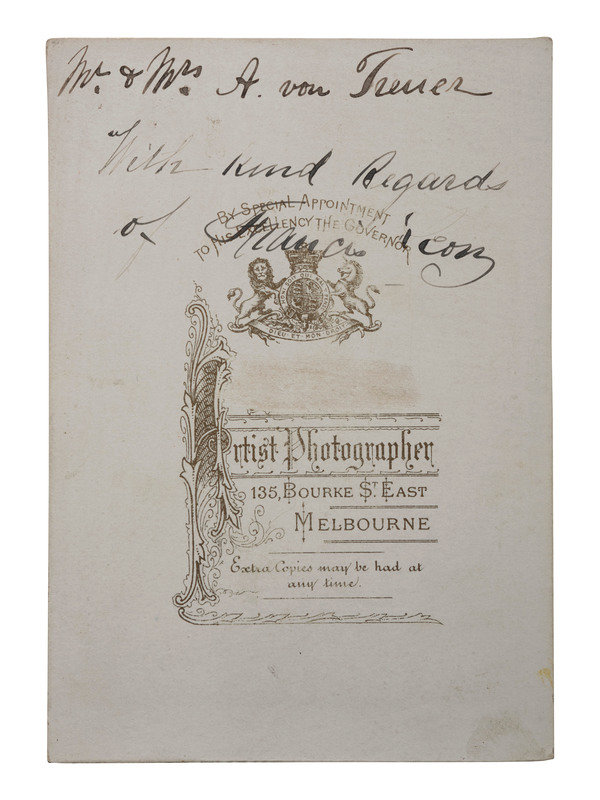 Mr. & Mrs A. von Treuer
With Kind Regards
of
BY SPECIAL APPOINTMENT
TO HIS EXCELLENCY THE GOVERNOR
DIEU ET MON DROIT
Artist Photographer
135, BOURKE ST. EAST
MELBOURNE
Extra Copies may be had at
any time.